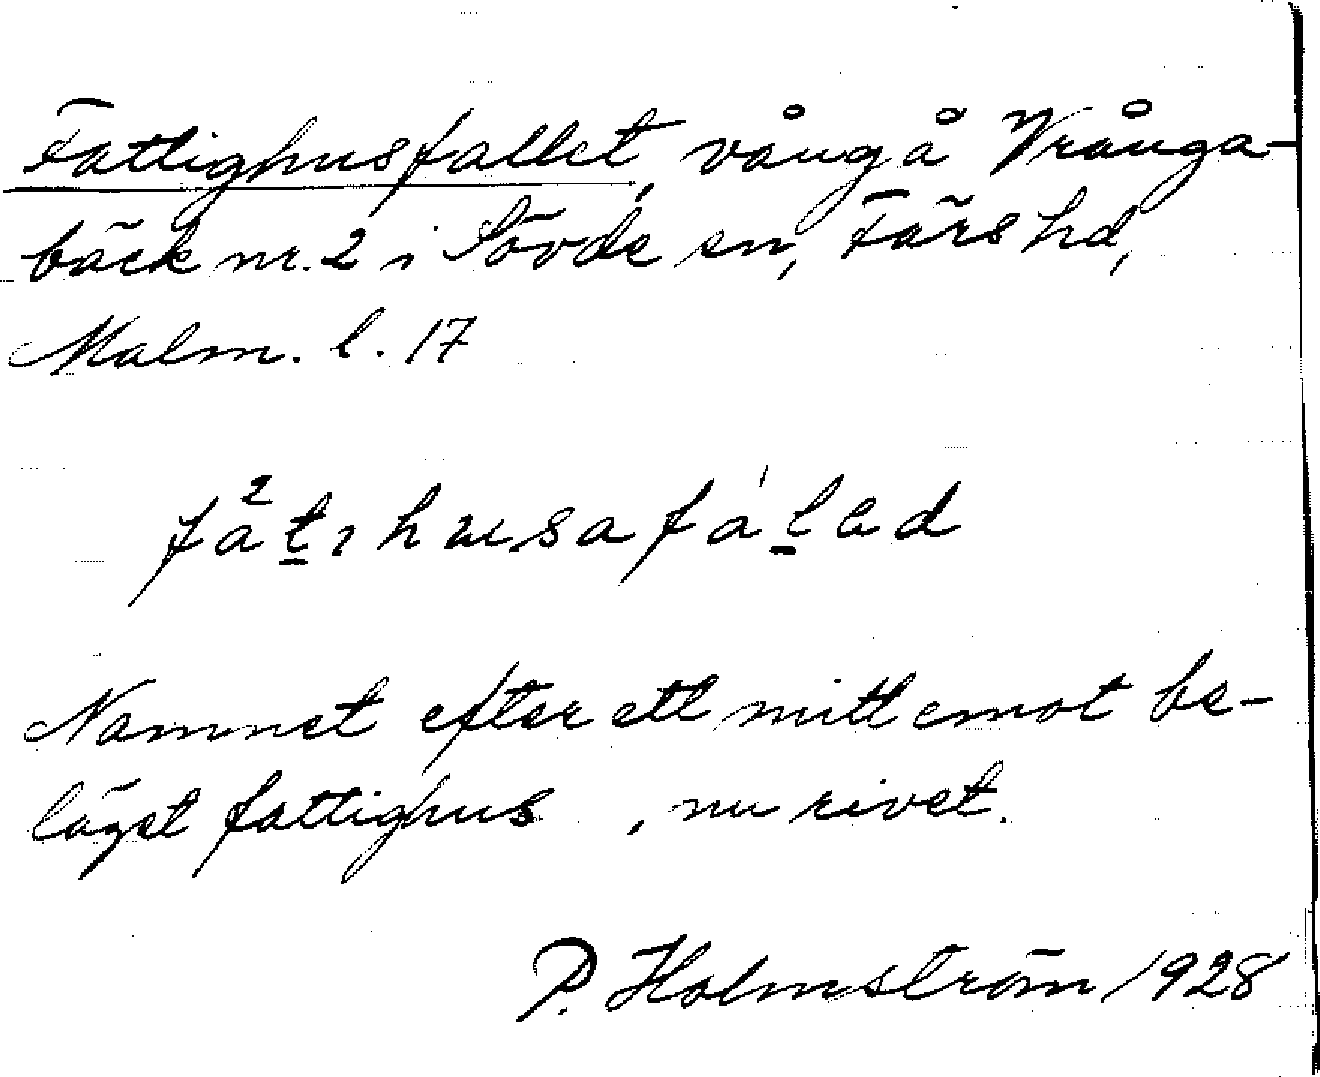 Fattighusfallet, vång å Vrånga-
bäck nr. 2 i Sövde sn, Färs hd,
Malm. l. 17
Namnet efter ett mitt emot be-
läget fattighus, nu rivet.
P. Holmström 1928